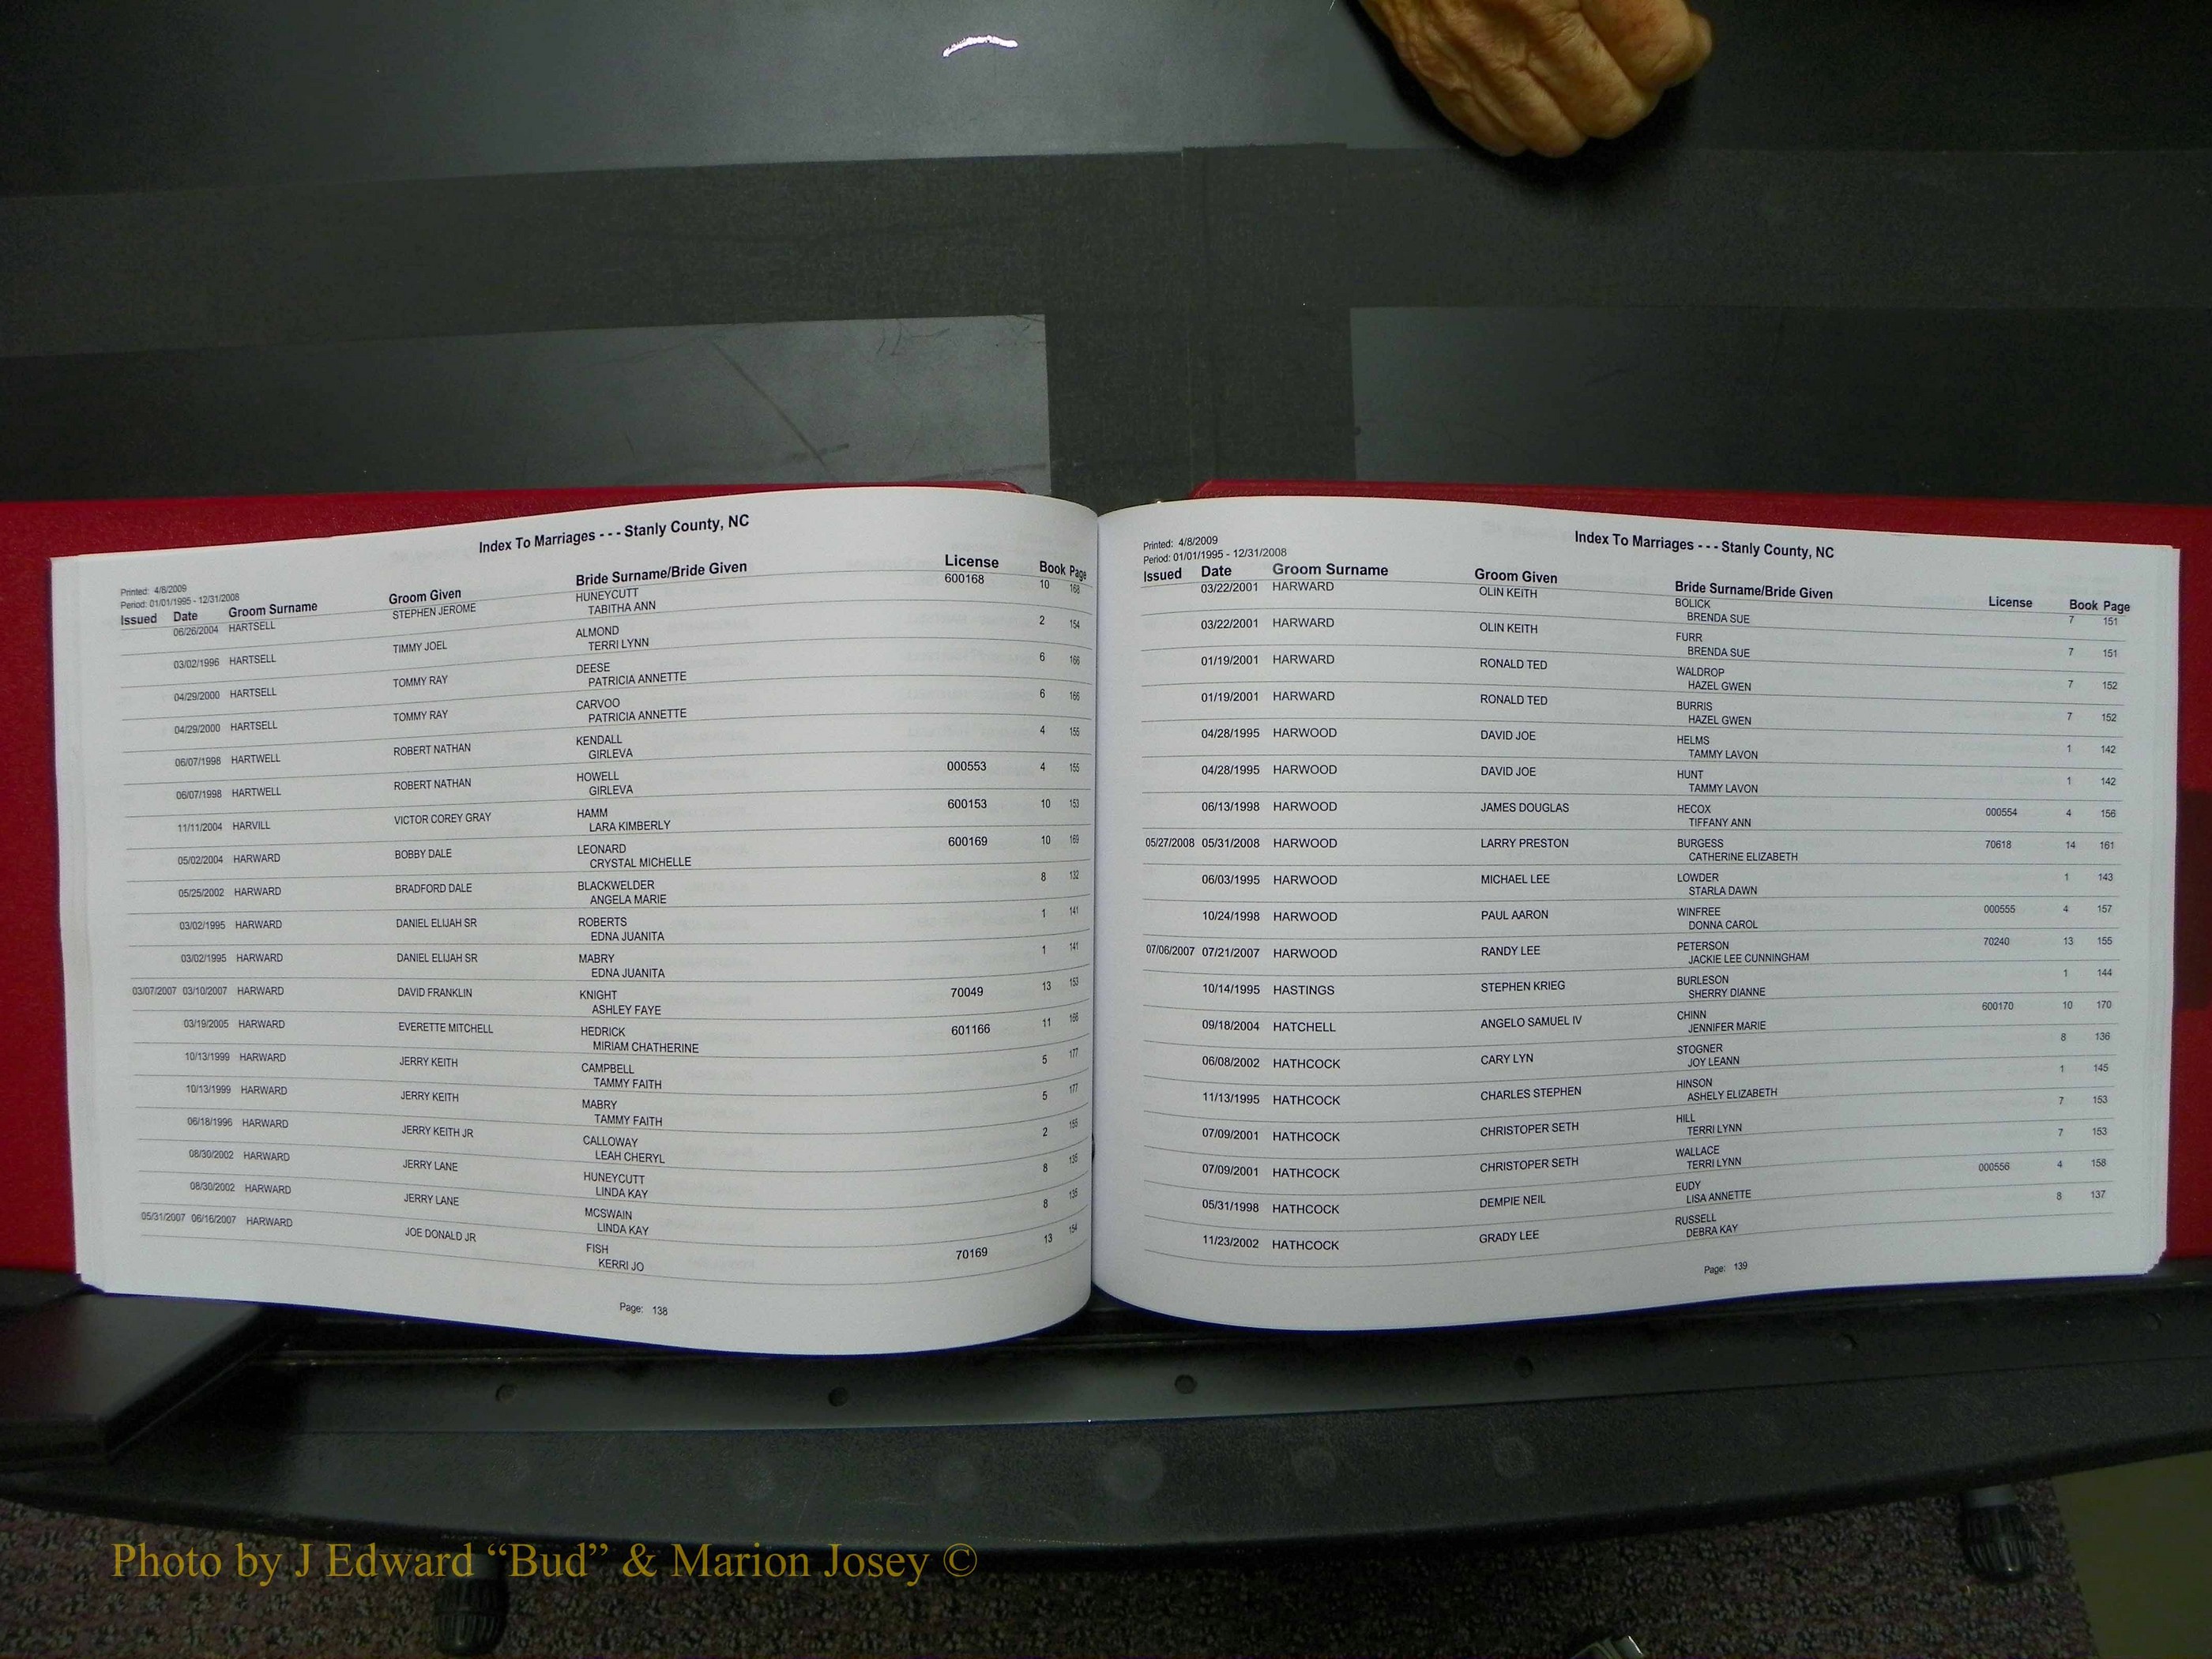 Index To Marriages - - - Stanly County, NC
Printed: 4/8/2009
Period: 01/01/1995 - 12/31/2008
Issued Date Groom Surname Groom Given Bride Surname/Bride Given License Book Page
06/26/2004 HARTSELL STEPHEN JEROME HUNEYCUTT 600168 10 168
TABITHA ANN
03/02/1996 HARTSELL TIMMY JOEL ALMOND 2 154
TERRI LYNN
04/29/2000 HARTSELL TOMMY RAY DEESE 6 166
PATRICIA ANNETTE
04/29/2000 HARTSELL TOMMY RAY CARVOO 6 166
PATRICIA ANNETTE
06/07/1998 HARTWELL ROBERT NATHAN KENDALL 4 155
GIRLEVA
06/07/1998 HARTWELL ROBERT NATHAN HOWELL 000553 4 155
GIRLEVA
11/11/2004 HARVILL VICTOR COREY GRAY HAMM 600153 10 153
LARA KIMBERLY
05/02/2004 HARWARD BOBBY DALE LEONARD 600169 10 169
CRYSTAL MICHELLE
05/25/2002 HARWARD BRADFORD DALE BLACKWELDER 8 132
ANGELA MARIE
03/02/1995 HARWARD DANIEL ELIJAH SR ROBERTS 1 141
EDNA JUANITA
03/02/1995 HARWARD DANIEL ELIJAH SR MABRY 1 141
EDNA JUANITA
03/07/2007 03/10/2007 HARWARD DAVID FRANKLIN KNIGHT 70049 13 153
ASHLEY FAYE
03/19/2005 HARWARD EVERETTE MITCHELL HEDRICK 601166 11 166
MIRIAM CHATHERINE
10/13/1999 HARWARD JERRY KEITH CAMPBELL 5 177
TAMMY FAITH
10/13/1999 HARWARD JERRY KEITH MABRY 5 177
TAMMY FAITH
06/18/1996 HARWARD JERRY KEITH JR CALLOWAY 2 155
LEAH CHERYL
08/30/2002 HARWARD JERRY LANE HUNEYCUTT 8 135
LINDA KAY
08/30/2002 HARWARD JERRY LANE MCSWAIN 8 135
LINDA KAY
05/31/2007 06/16/2007 HARWARD JOE DONALD JR FISH 70169 13 154
KERRI JO
Page: 138
Index To Marriages - - - Stanly County, NC
Printed: 4/8/2009
Period: 01/01/1995 - 12/31/2008
Issued Date Groom Surname Groom Given Bride Surname/Bride Given License Book Page
03/22/2001 HARWARD OLIN KEITH BOLICK 7 151
BRENDA SUE
03/22/2001 HARWARD OLIN KEITH FURR 7 151
BRENDA SUE
01/19/2001 HARWARD RONALD TED WALDROP 7 152
HAZEL GWEN
01/19/2001 HARWARD RONALD TED BURRIS 7 152
HAZEL GWEN
04/28/1995 HARWOOD DAVID JOE HELMS 1 142
TAMMY LAVON
04/28/1995 HARWOOD DAVID JOE HUNT 1 142
TAMMY LAVON
06/13/1998 HARWOOD JAMES DOUGLAS HECOX 000554 4 156
TIFFANY ANN
05/27/2008 05/31/2008 HARWOOD LARRY PRESTON BURGESS 70618 14 161
CATHERINE ELIZABETH
06/03/1995 HARWOOD MICHAEL LEE LOWDER 1 143
STARLA DAWN
10/24/1998 HARWOOD PAUL AARON WINFREE 000555 4 157
DONNA CAROL
07/06/2007 07/21/2007 HARWOOD RANDY LEE PETERSON 70240 13 155
JACKIE LEE CUNNINGHAM
10/14/1995 HASTINGS STEPHEN KRIEG BURLESON 1 144
SHERRY DIANNE
09/18/2004 HATCHELL ANGELO SAMUEL IV CHINN 600170 10 170
JENNIFER MARIE
06/08/2002 HATHCOCK CARY LYN STOGNER 8 136
JOY LEANN
11/13/1995 HATHCOCK CHARLES STEPHEN HINSON 1 145
ASHELY ELIZABETH
07/09/2001 HATHCOCK CHRISTOPER SETH HILL 7 153
TERRI LYNN
07/09/2001 HATHCOCK CHRISTOPER SETH WALLACE 7 153
TERRI LYNN
05/31/1998 HATHCOCK DEMPIE NEIL EUDY 000556 4 158
LISA ANNETTE
11/23/2002 HATHCOCK GRADY LEE RUSSELL 8 137
DEBRA KAY
Page: 139
Photo by J Edward “Bud” & Marion Josey ©